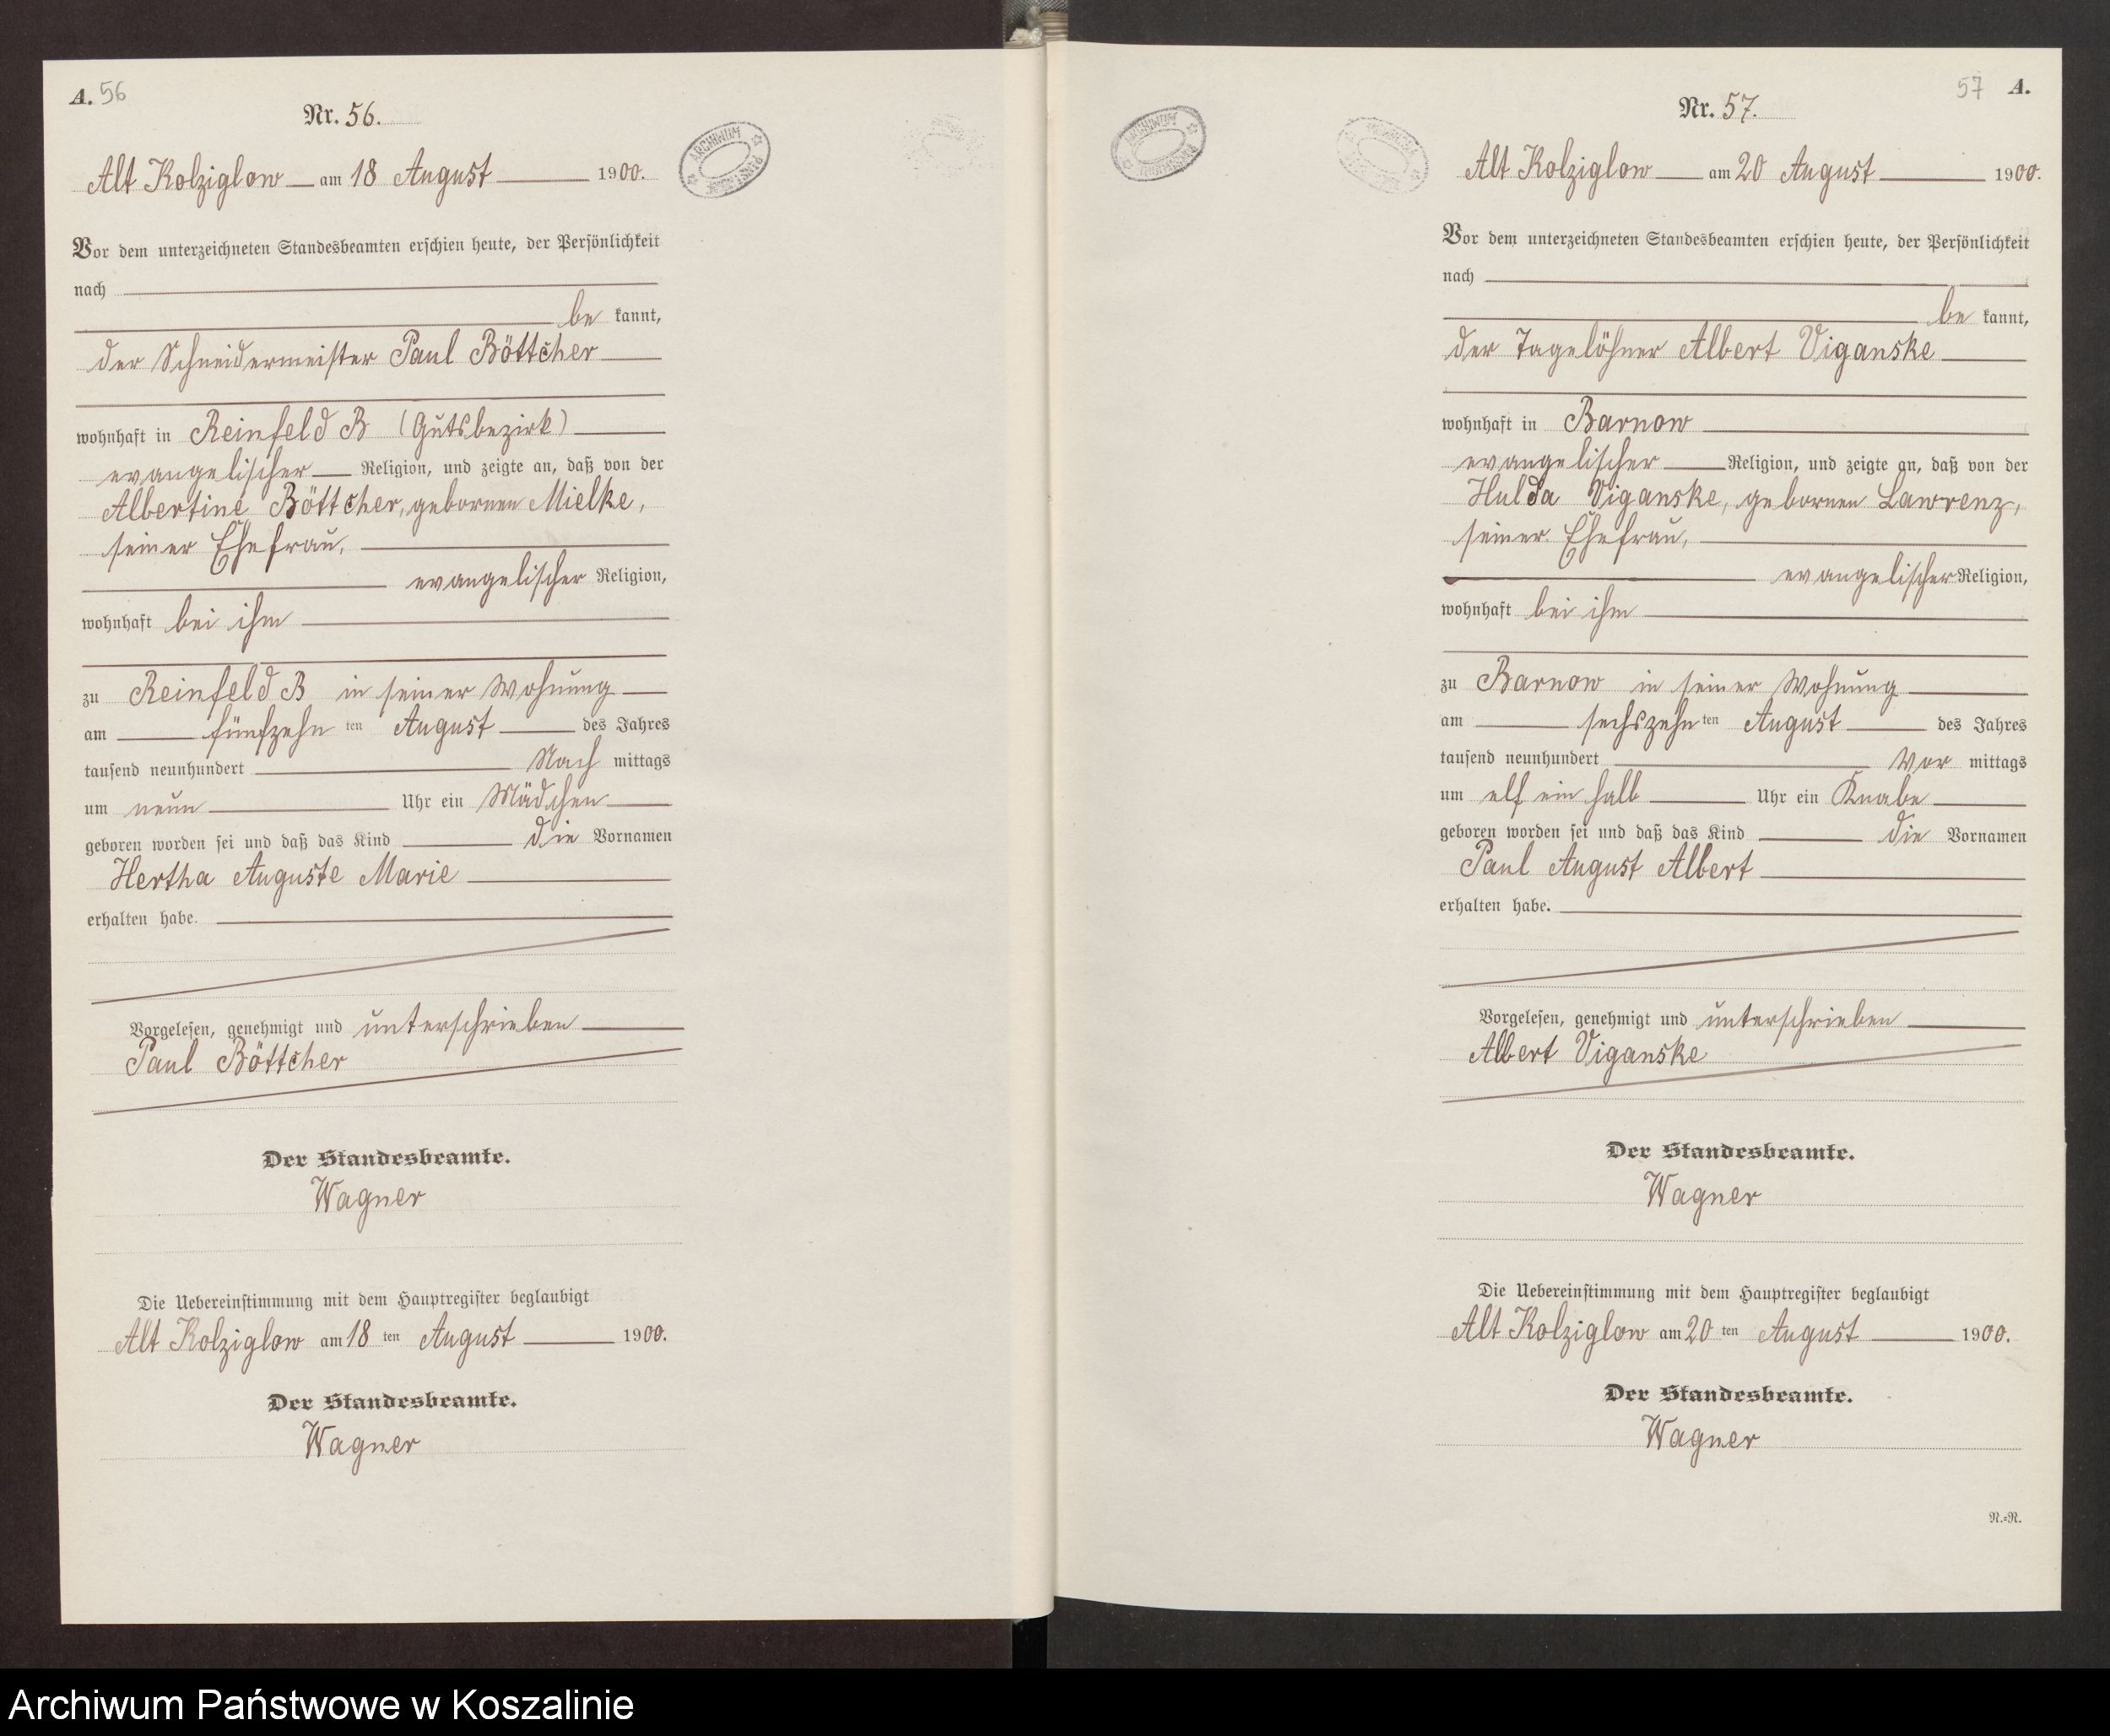 A. 56
Nr. 56.
Alt Kolziglow am 18 August 1900.
ARCHIWUM PAŃSTWOWE
Vor dem unterzeichneten Standesbeamten erschien heute, der Persönlichkeit
nach
be kannt,
der Schneidermeister Paul Böttcher
wohnhaft in Reinfeld B (Gutsbezirk)
evangelischer Religion, und zeigte an, daß von der
Albertine Böttcher, gebornen Mielke,
seiner Ehefrau,
evangelischer Religion,
wohnhaft bei ihm
zu Reinfeld B in seiner Wohnung
am fünfzehn ten August des Jahres
tausend neunhundert Nach mittags
um neun Uhr ein Mädchen
geboren worden sei und daß das Kind die Vornamen
Hertha Auguste Marie
erhalten habe.
Vorgelesen, genehmigt und unterschrieben
Paul Böttcher
Der Standesbeamte.
Wagner
Die Uebereinstimmung mit dem Hauptregister beglaubigt
Alt Kolziglow am 18 ten August 1900.
Der Standesbeamte.
Wagner
57 A.
Nr. 57.
ARCHIWUM PAŃSTWOWE
Alt Kolziglow am 20 August 1900.
Vor dem unterzeichneten Standesbeamten erschien heute, der Persönlichkeit
nach
be kannt,
der Tagelöhner Albert Viganske
wohnhaft in Barnow
evangelischer Religion, und zeigte an, daß von der
Hulda Viganske, gebornen Lawrenz,
seiner Ehefrau,
evangelischer Religion,
wohnhaft bei ihm
zu Barnow in seiner Wohnung
am sechszehn ten August des Jahres
tausend neunhundert Vor mittags
um elf ein halb Uhr ein Knabe
geboren worden sei und daß das Kind die Vornamen
Paul August Albert
erhalten habe.
Vorgelesen, genehmigt und unterschrieben
Albert Viganske
Der Standesbeamte.
Wagner
Die Uebereinstimmung mit dem Hauptregister beglaubigt
Alt Kolziglow am 20 ten August 1900.
Der Standesbeamte.
Wagner
N.=N.
Archiwum Państwowe w Koszalinie